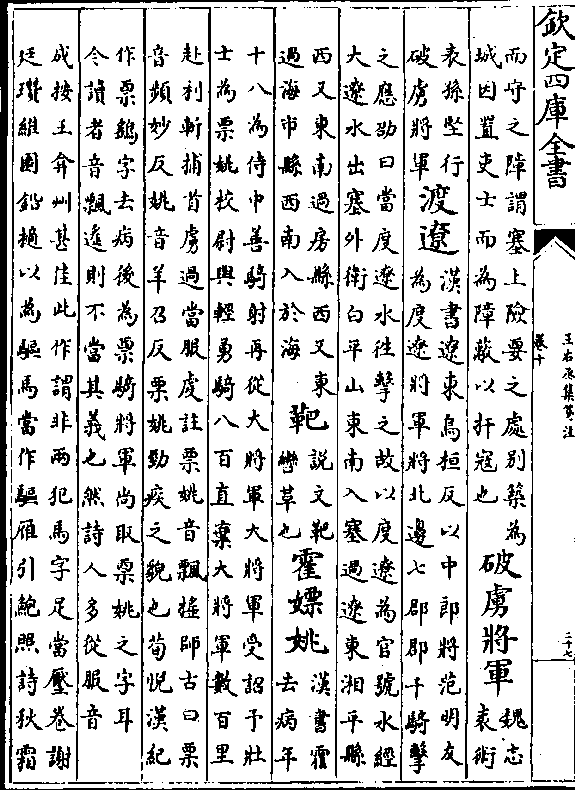 欽定四庫全書
王右丞集箋注
卷十
二十七
而守之障謂塞上險要之處別築為
城因置吏士而為障蔽以扞寇也
破虜將軍
魏志
袁術
表孫堅行
破虜將軍
渡遼
漢書遼東烏桓反以中郎將范明友
為度遼將軍將北邊七郡郡千騎擊
之應劭曰當度遼水往擊之故以度遼為官號水經
大遼水出塞外衛白平山東南入塞過遼東湘平縣
西又東南過房縣西又東
過海市縣西南入於海
靶
說文靶
轡草也
霍嫖姚
漢書霍
去病年
十八為侍中善騎射再從大將軍大將軍受詔予壯
士為票姚校尉與輕勇騎八百直棄大將軍數百里
赴利斬捕首虜過當服虔註票姚音飄搖師古曰票
音頻妙反姚音羊召反票姚勁疾之貌也荀悅漢紀
作票鷂字去病後為票騎將軍尚取票姚之字耳
今讀者音飄遙則不當其義也然詩人多從服音
成按王弇州甚佳此作謂非兩犯馬字足當壓卷謝
廷瓚維園鉛摘以為驅馬當作驅雁引鮑照詩秋霜